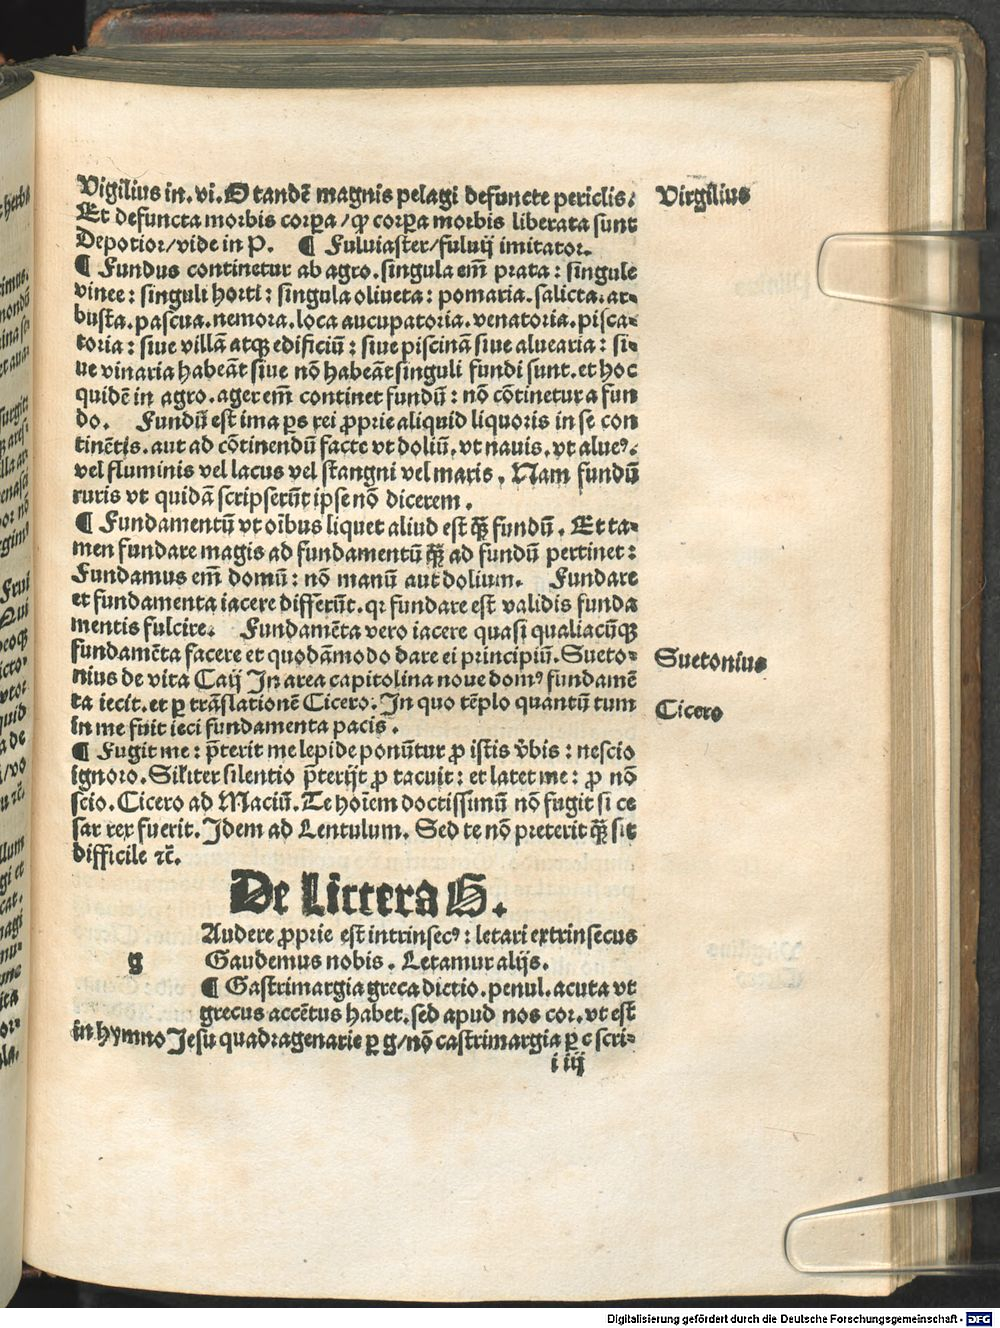 Vigilius in. vi. O tandē magnis pelagi defuncte periclis.
Virgilius
Et defuncta morbis corpꝛa / ꝙ corpꝛa morbis liberata sunt
Depotior / vide in P. ¶ Fuluiaster / fuluij imitator.
¶ Fundus continetur ab agro. singula em̄ prata : singule
vinee : singuli horti : singula oliueta : pomaria. salicta. ar⸗
busta. pascua. nemora. loca aucupatoria. venatoria. pisca⸗
toria : siue villā atqꝫ edificiū : siue piscinā siue aluearia : si⸗
ue vinaria habeāt siue nō habeāt singuli fundi sunt. et hoc
quidē in agro. ager em̄ continet fundū : nō cōtinetur a fun
do. Fundū est ima ꝑs rei ꝓprie aliquid liquoris in se con
tinētis. aut ad cōtinendū facte vt doliū. vt nauis. vt alueꝰ.
vel fluminis vel lacus vel stangni vel maris. Nam fundū
ruris vt quidā scripserūt ipse nō dicerem.
¶ Fundamentū vt oībus liquet aliud est qꝫ̄ fundū. Et ta⸗
men fundare magis ad fundamentū qꝫ̄ ad fundū pertinet :
Fundamus em̄ domū : nō manū aut dolium. Fundare
et fundamenta iacere differūt. qꝛ fundare est validis funda
mentis fulcire. Fundamēta vero iacere quasi qualiacūqꝫ
fundamēta facere et quodāmodo dare ei principiū. Sueto⸗
Suetonius
nius de vita Caij In area capitolina noue domꝰ fundamē
ta iecit. et ꝑ trāslationē Cicero. In quo tēplo quantū tum
Cicero
in me fuit ieci fundamenta pacis.
¶ Fugit me : p̄terit me lepide ponūtur ꝓ istis v̄bis : nescio
ignoro. Siliter silentio p̄terijt ꝓ tacuit : et latet me : ꝓ nō
scio. Cicero ad Maciū. Te hoīem doctissimū nō fugit si ce
sar rex fuerit. Idem ad Lentulum. Sed te nō preterit qꝫ̄ sit
difficile ⁊c̄.
De Littera G.
g
Audere ꝓprie est intrinsecꝰ : letari extrinsecus
Gaudemus nobis. Letamur alijs.
¶ Gastrimargia greca dictio. penul. acuta vt
grecus accētus habet. sed apud nos cor. vt est
in hymno Jesu quadragenarie ꝑ g / nō castrimargia ꝑ c scri⸗
i iij
Digitalisierung gefördert durch die Deutsche Forschungsgemeinschaft - DFG